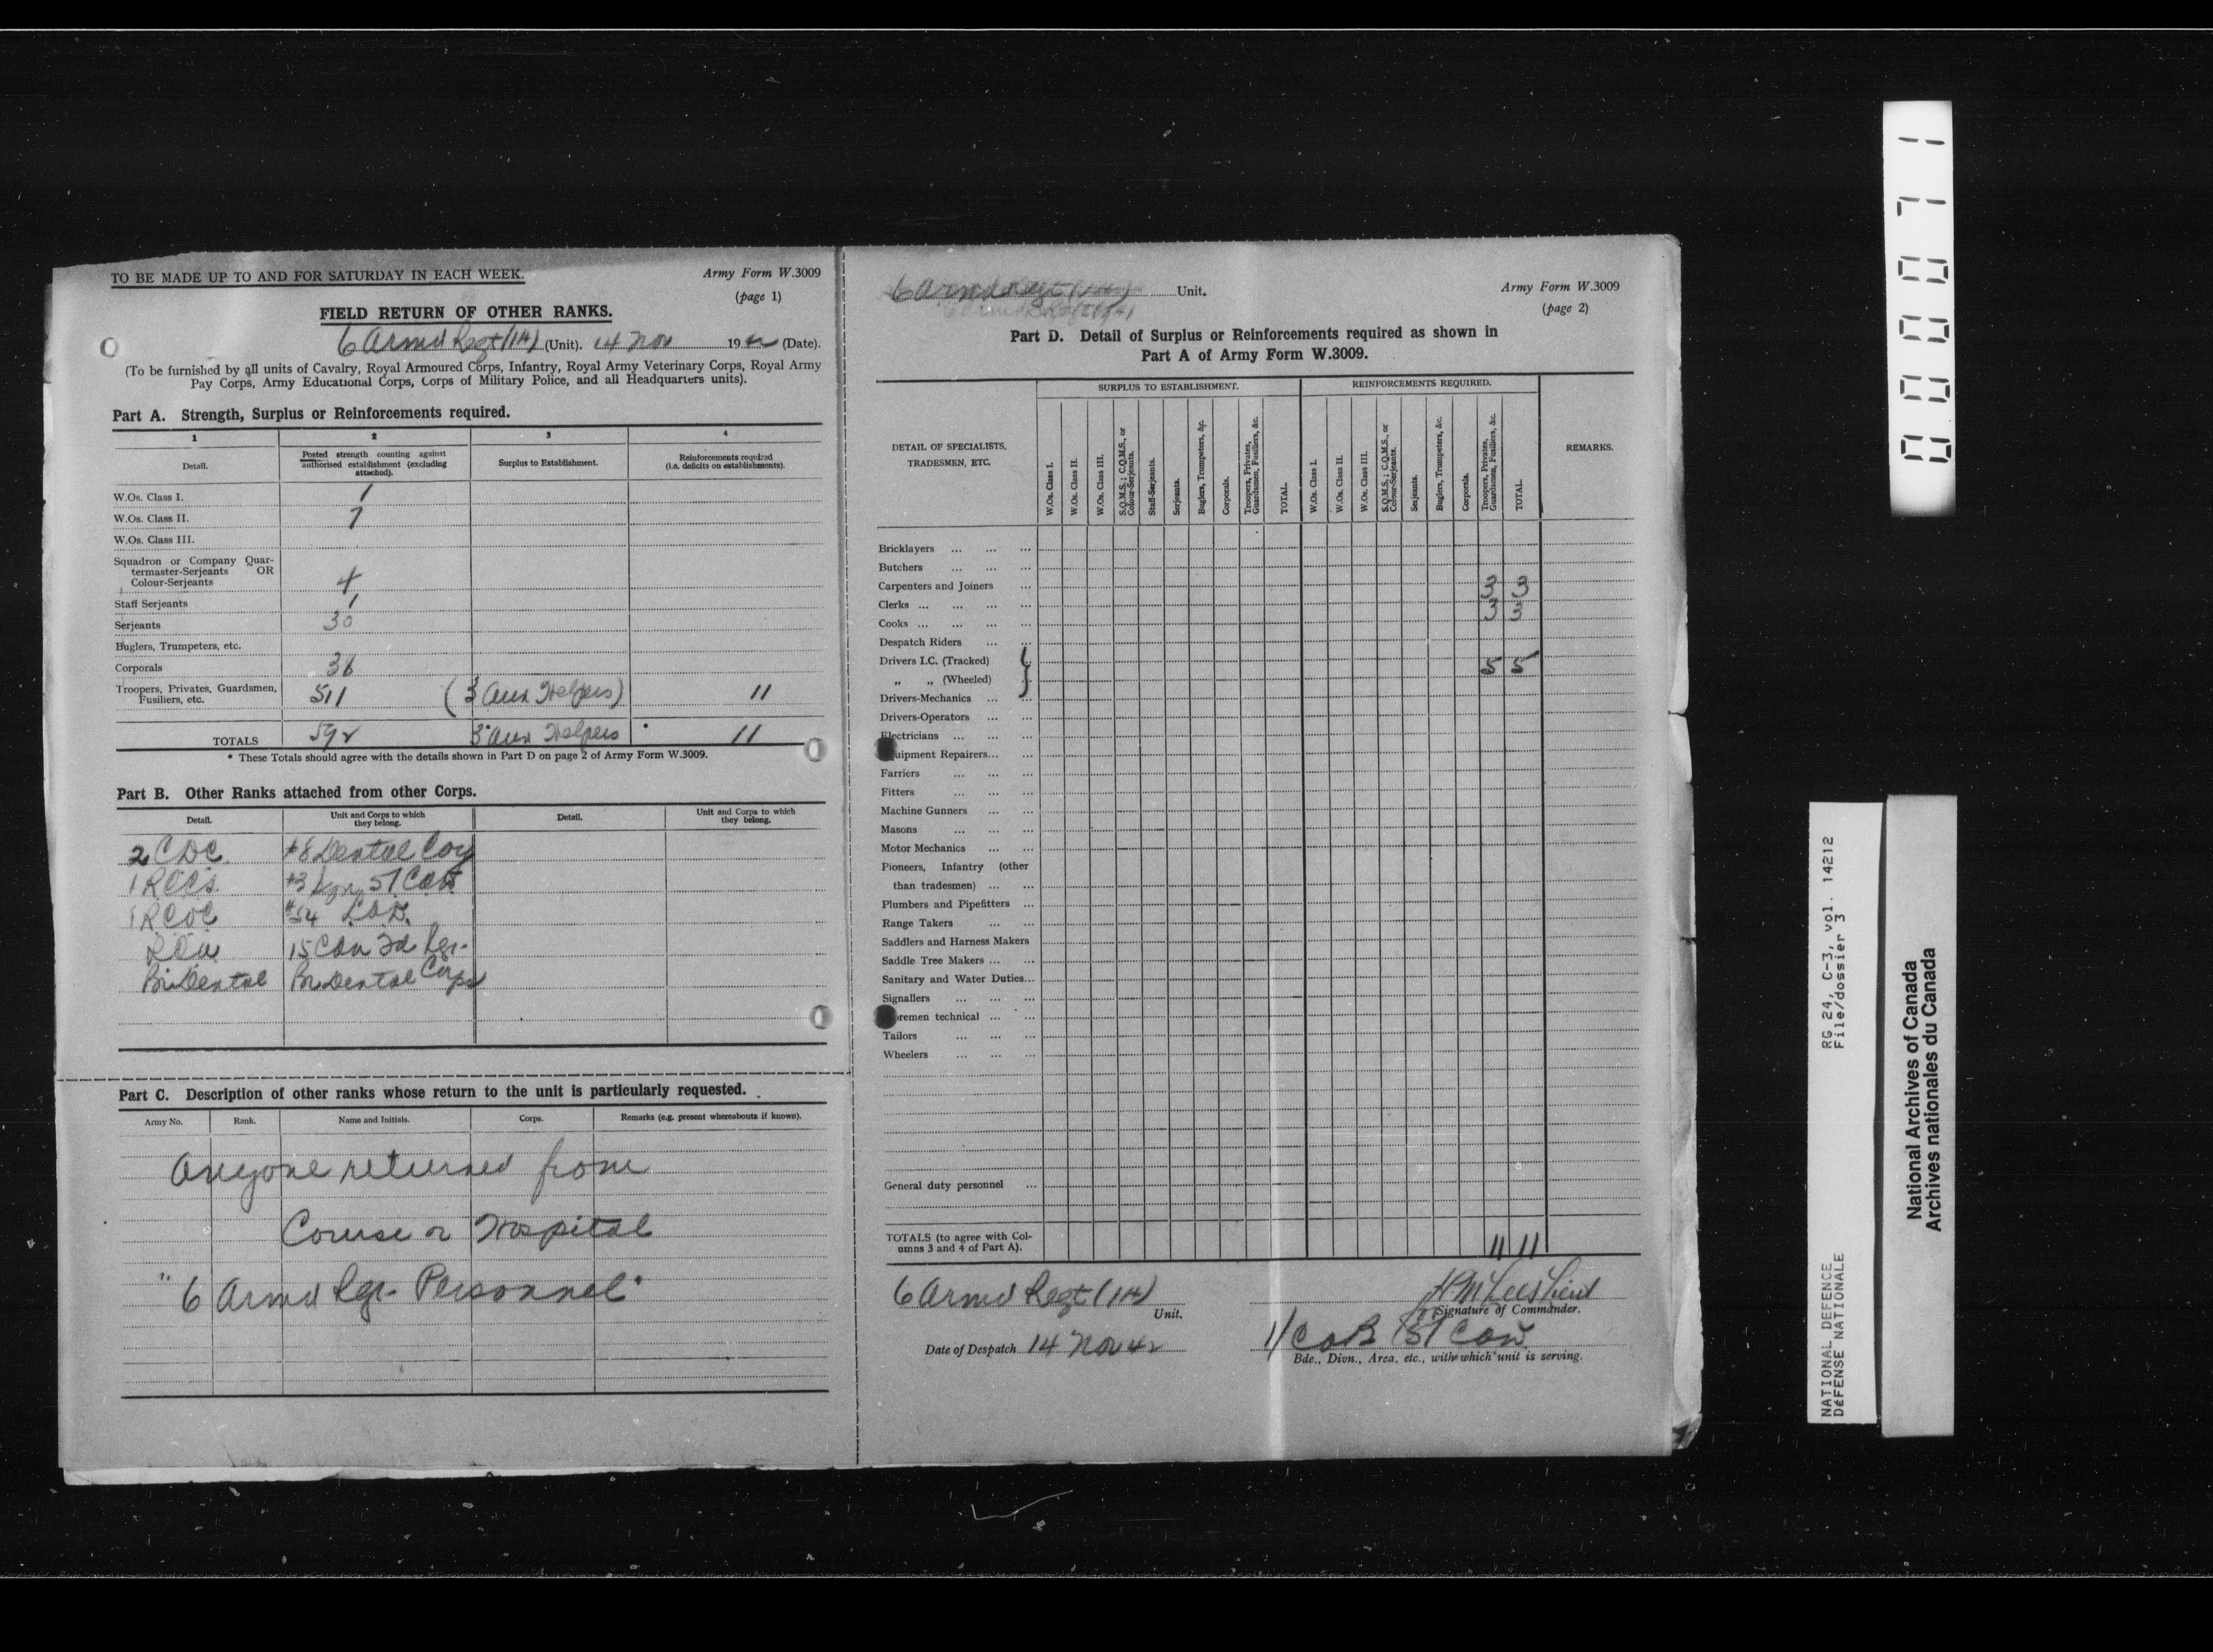 TO BE MADE UP TO AND FOR SATURDAY IN EACH WEEK.
Army Form W.3009
(page 1)
FIELD RETURN OF OTHER RANKS.
6 Armd Regt (1H) (Unit). 14 Nov 1942 (Date).
(To be furnished by all units of Cavalry, Royal Armoured Corps, Infantry, Royal Army Veterinary Corps, Royal Army
Pay Corps, Army Educational Corps, Corps of Military Police, and all Headquarters units).
Part A. Strength, Surplus or Reinforcements required.
1 2 3 4
Detail. Posted strength counting against authorised establishment (excluding attached). Surplus to Establishment. Reinforcements required (i.e. deficits on establishments).
W.Os. Class I. 1
W.Os. Class II.
W.Os. Class III.
Squadron or Company Quar-
termaster-Serjeants OR
Colour-Serjeants 4
Staff Serjeants 1
Serjeants 30
Buglers, Trumpeters, etc.
Corporals 36
Troopers, Privates, Guardsmen,
Fusiliers, etc. 511 (3 Aux Helpers) 11
TOTALS 592 3 Aux Helpers 11
* These Totals should agree with the details shown in Part D on page 2 of Army Form W.3009.
Part B. Other Ranks attached from other Corps.
Detail. Unit and Corps to which they belong. Detail. Unit and Corps to which they belong.
2 CDC. #8 Dental Coy
1 RCCS. #3 51 CAB
1 RCOC #54 LAD.
15 Can Fd
Br. Dental Br. Dental Corps
Part C. Description of other ranks whose return to the unit is particularly requested.
Army No. Rank. Name and Initials. Corps. Remarks (e.g. present whereabouts if known).
Anyone returned from
Course or Hospital
"6 Armd Rgt- Personnel"
6 Armd Regt (1H) Unit.
Army Form W.3009
(page 2)
Part D. Detail of Surplus or Reinforcements required as shown in
Part A of Army Form W.3009.
DETAIL OF SPECIALISTS, TRADESMEN, ETC.
SURPLUS TO ESTABLISHMENT.
REINFORCEMENTS REQUIRED.
REMARKS.
W.Os. Class I.
W.Os. Class II.
W.Os. Class III.
S.Q.M.S.; C.Q.M.S., or Colour-Serjeants.
Staff-Serjeants.
Serjeants.
Buglers, Trumpeters, &c.
Corporals.
Troopers, Privates, Guardsmen, Fusiliers, &c.
TOTAL.
W.Os. Class I.
W.Os. Class II.
W.Os. Class III.
S.Q.M.S.; C.Q.M.S., or Colour-Serjeants.
Serjeants.
Buglers, Trumpeters, &c.
Corporals.
Troopers, Privates, Guardsmen, Fusiliers, &c.
TOTAL.
Bricklayers ... ... ...
Butchers ... ... ...
Carpenters and Joiners ... 3 3
Clerks ... ... ... ... 3 3
Cooks ... ... ... ...
Despatch Riders ... ...
Drivers I.C. (Tracked) 5 5
„ „ (Wheeled)
Drivers-Mechanics ... ...
Drivers-Operators ... ...
Electricians ... ... ...
uipment Repairers... ...
Farriers ... ... ...
Fitters ... ... ...
Machine Gunners ... ...
Masons ... ... ...
Motor Mechanics ... ...
Pioneers, Infantry (other
than tradesmen) ... ...
Plumbers and Pipefitters ...
Range Takers ... ...
Saddlers and Harness Makers
Saddle Tree Makers ... ...
Sanitary and Water Duties...
Signallers ... ... ...
oremen technical ... ...
Tailors ... ... ...
Wheelers ... ... ...
General duty personnel ...
TOTALS (to agree with Col-
umns 3 and 4 of Part A). 11 11
6 Armd Regt (1H)
Unit.
Signature of Commander.
Date of Despatch 14 Nov 42
Bde., Divn., Area, etc., with which unit is serving.
0000071
RG 24, C-3, vol. 14212
File/dossier 3
NATIONAL DEFENCE
DÉFENSE NATIONALE
National Archives of Canada
Archives nationales du Canada